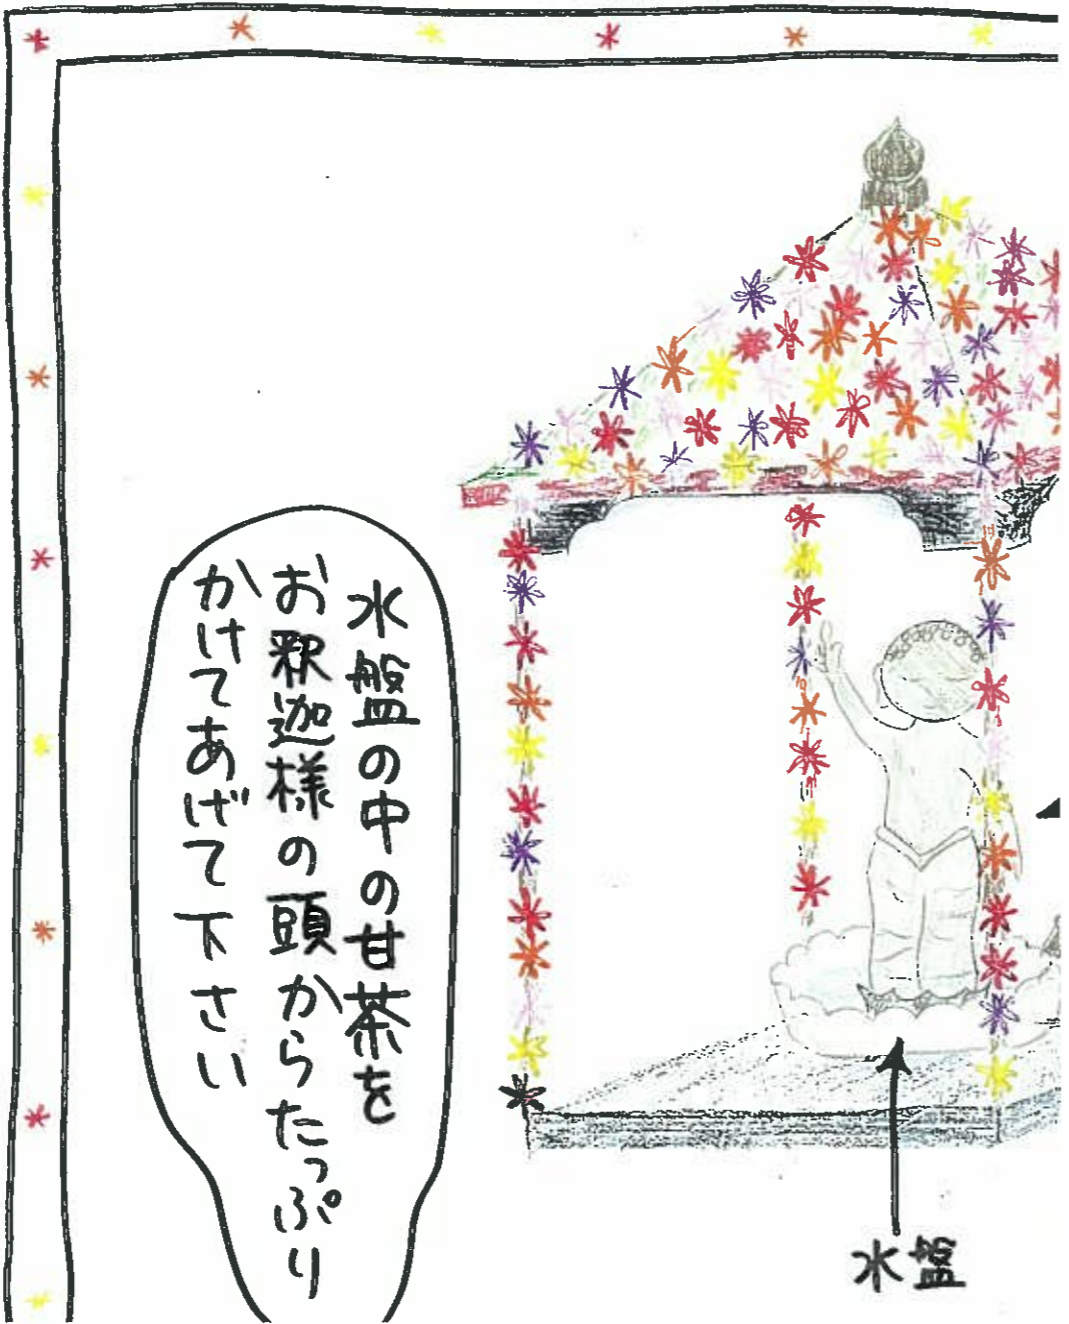 水盤の中の甘茶を
お釈迦様の頭からたっぷり
かけてあげて下さい
水盤